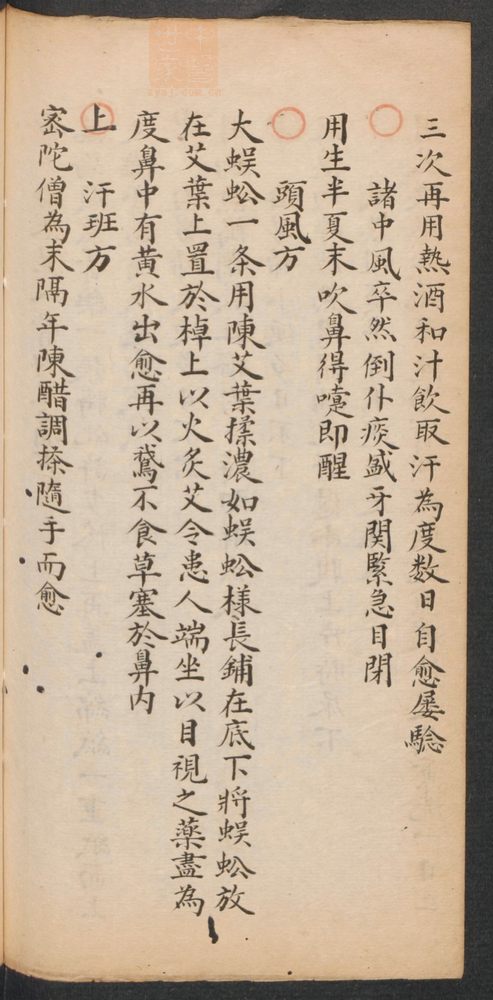 三次再用熱酒和汁飲取汗為度数日自愈屡驗
諸中風卒然倒仆痰盛牙関緊急目閉
用生半夏末吹鼻得嚏即醒
頭風方
大蜈蚣一条用陳艾葉揉濃如蜈蚣様長鋪在底下將蜈蚣放
在艾葉上置於棹上以火炙艾令患人端坐以目視之藥盡為
度鼻中有黃水出愈再以鵞不食草塞於鼻内
上 汗班方
宻陀僧為末隔年陳醋調搽隨手而愈